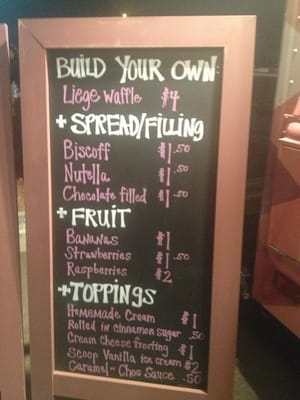 BUILD YOUR OWN
Liege Waffle $4
+ SPREAD/FILLING
Biscoff $1.50
Nutella $1.50
Chocolate filled $1.50
+ FRUIT
Bananas $1
Strawberries $1.50
Raspberries $2
+ TOPPINGS
Homemade Cream $1
Rolled in cinnamon sugar .50
Cream Cheese frosting $1
Scoop Vanilla ice cream $2
Caramel - Choc Sauce .50